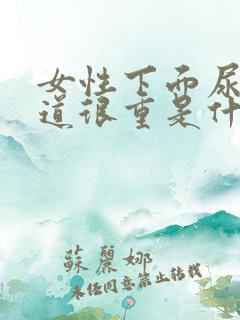 女性下面尿
道很重是什
蘇麗娜
未经同意禁止转载